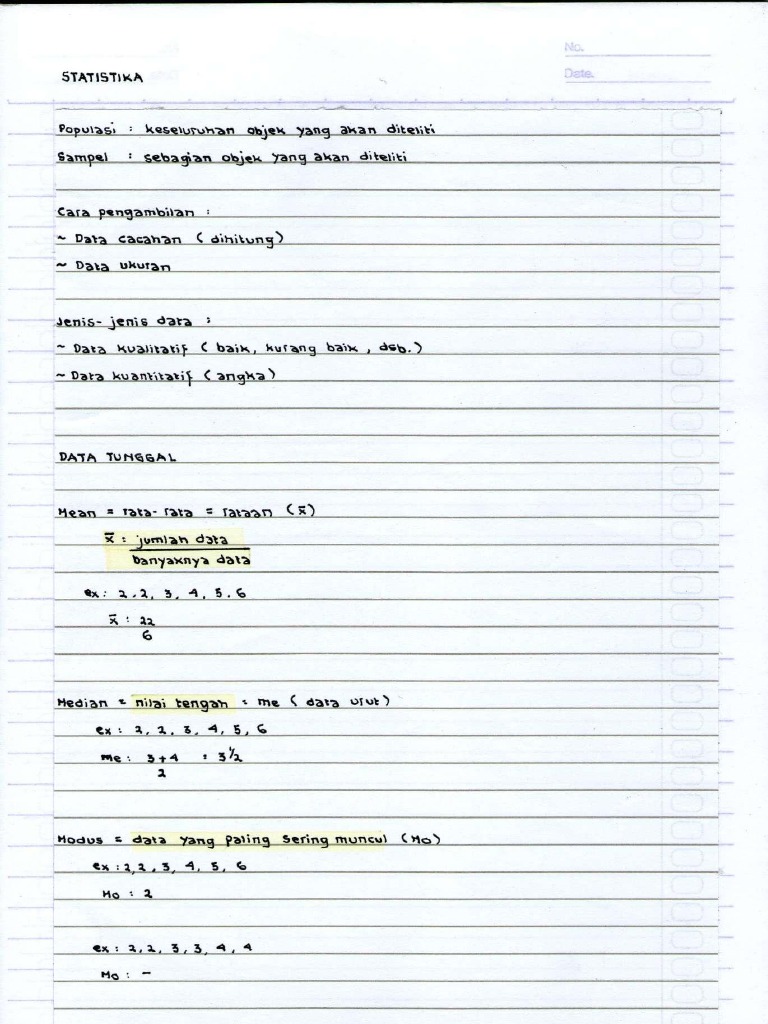 No.
Date.
STATISTIKA
Populasi : keseluruhan objek yang akan diteliti
Sampel : sebagian objek yang akan diteliti
Cara pengambilan :
~ Data cacahan (dihitung)
~ Data ukuran
Jenis-jenis data :
~ Data kualitatif (baik, kurang baik, dsb.)
~ Data kuantitatif (angka)
DATA TUNGGAL
Mean = rata-rata = rataan (x̄)
x̄ : jumlah data
banyaknya data
ex : 2, 2, 3, 4, 5, 6
x̄ : 22
6
Median = nilai tengah : me (data urut)
ex : 2, 2, 3, 4, 5, 6
me : 3+4 : 3 1/2
2
Modus = data yang paling sering muncul (Mo)
ex : 2, 2, 3, 4, 5, 6
Mo : 2
ex : 2, 2, 3, 3, 4, 4
Mo : -